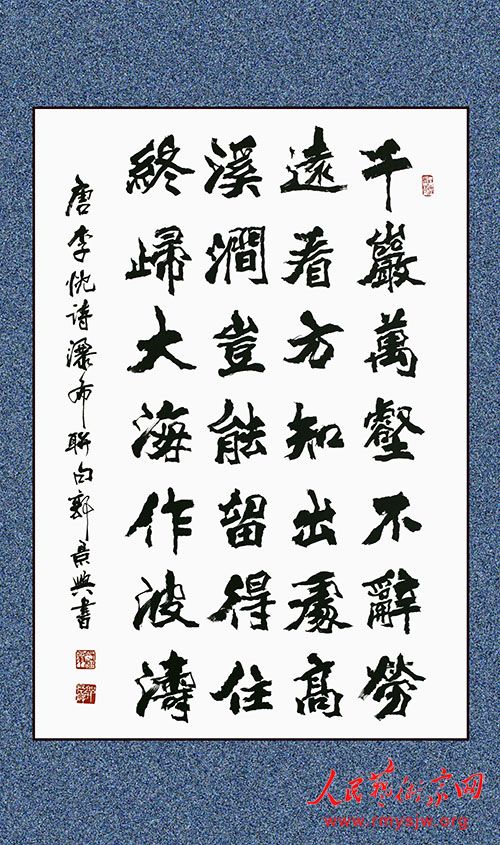 千巖萬壑不辭勞
遠看方知出處高
溪澗豈能留得住
終歸大海作波濤
唐李忱诗瀑布聯句郭景興書
人民艺术家网
www.rmysjw.org